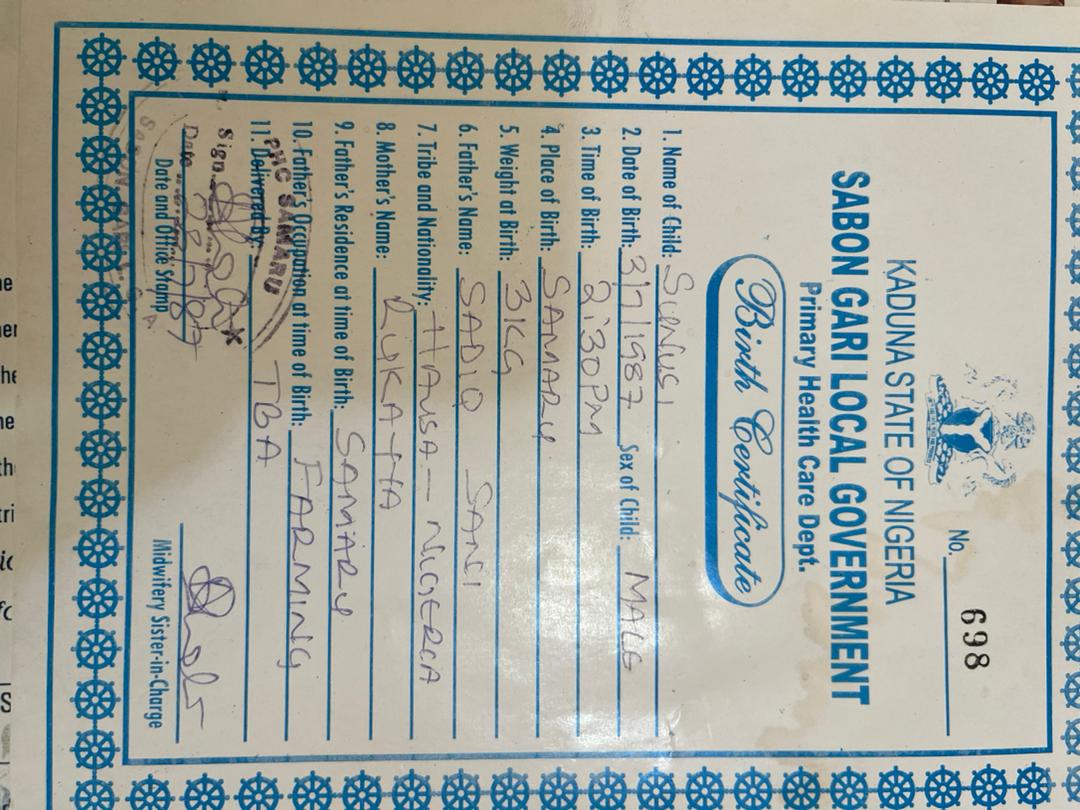 KADUNA STATE OF NIGERIA
No. 698
SABON GARI LOCAL GOVERNMENT
Primary Health Care Dept.
Birth Certificate
1. Name of Child: SUNUSI
2. Date of Birth: 3/7/1987 Sex of Child: MALE
3. Time of Birth: 2:30PM
4. Place of Birth: SAMARU
5. Weight at Birth: 3KG
6. Father's Name: SADIQ SANI
7. Tribe and Nationality: HAUSA - NIGERIA
8. Mother's Name:
9. Father's Residence at time of Birth: SAMARU
10. Father's Occupation at time of Birth: FARMING
11. Delivered By: TBA
PHC SAMARU
Sign
Date
Date and Office Stamp
Midwifery Sister-in-Charge